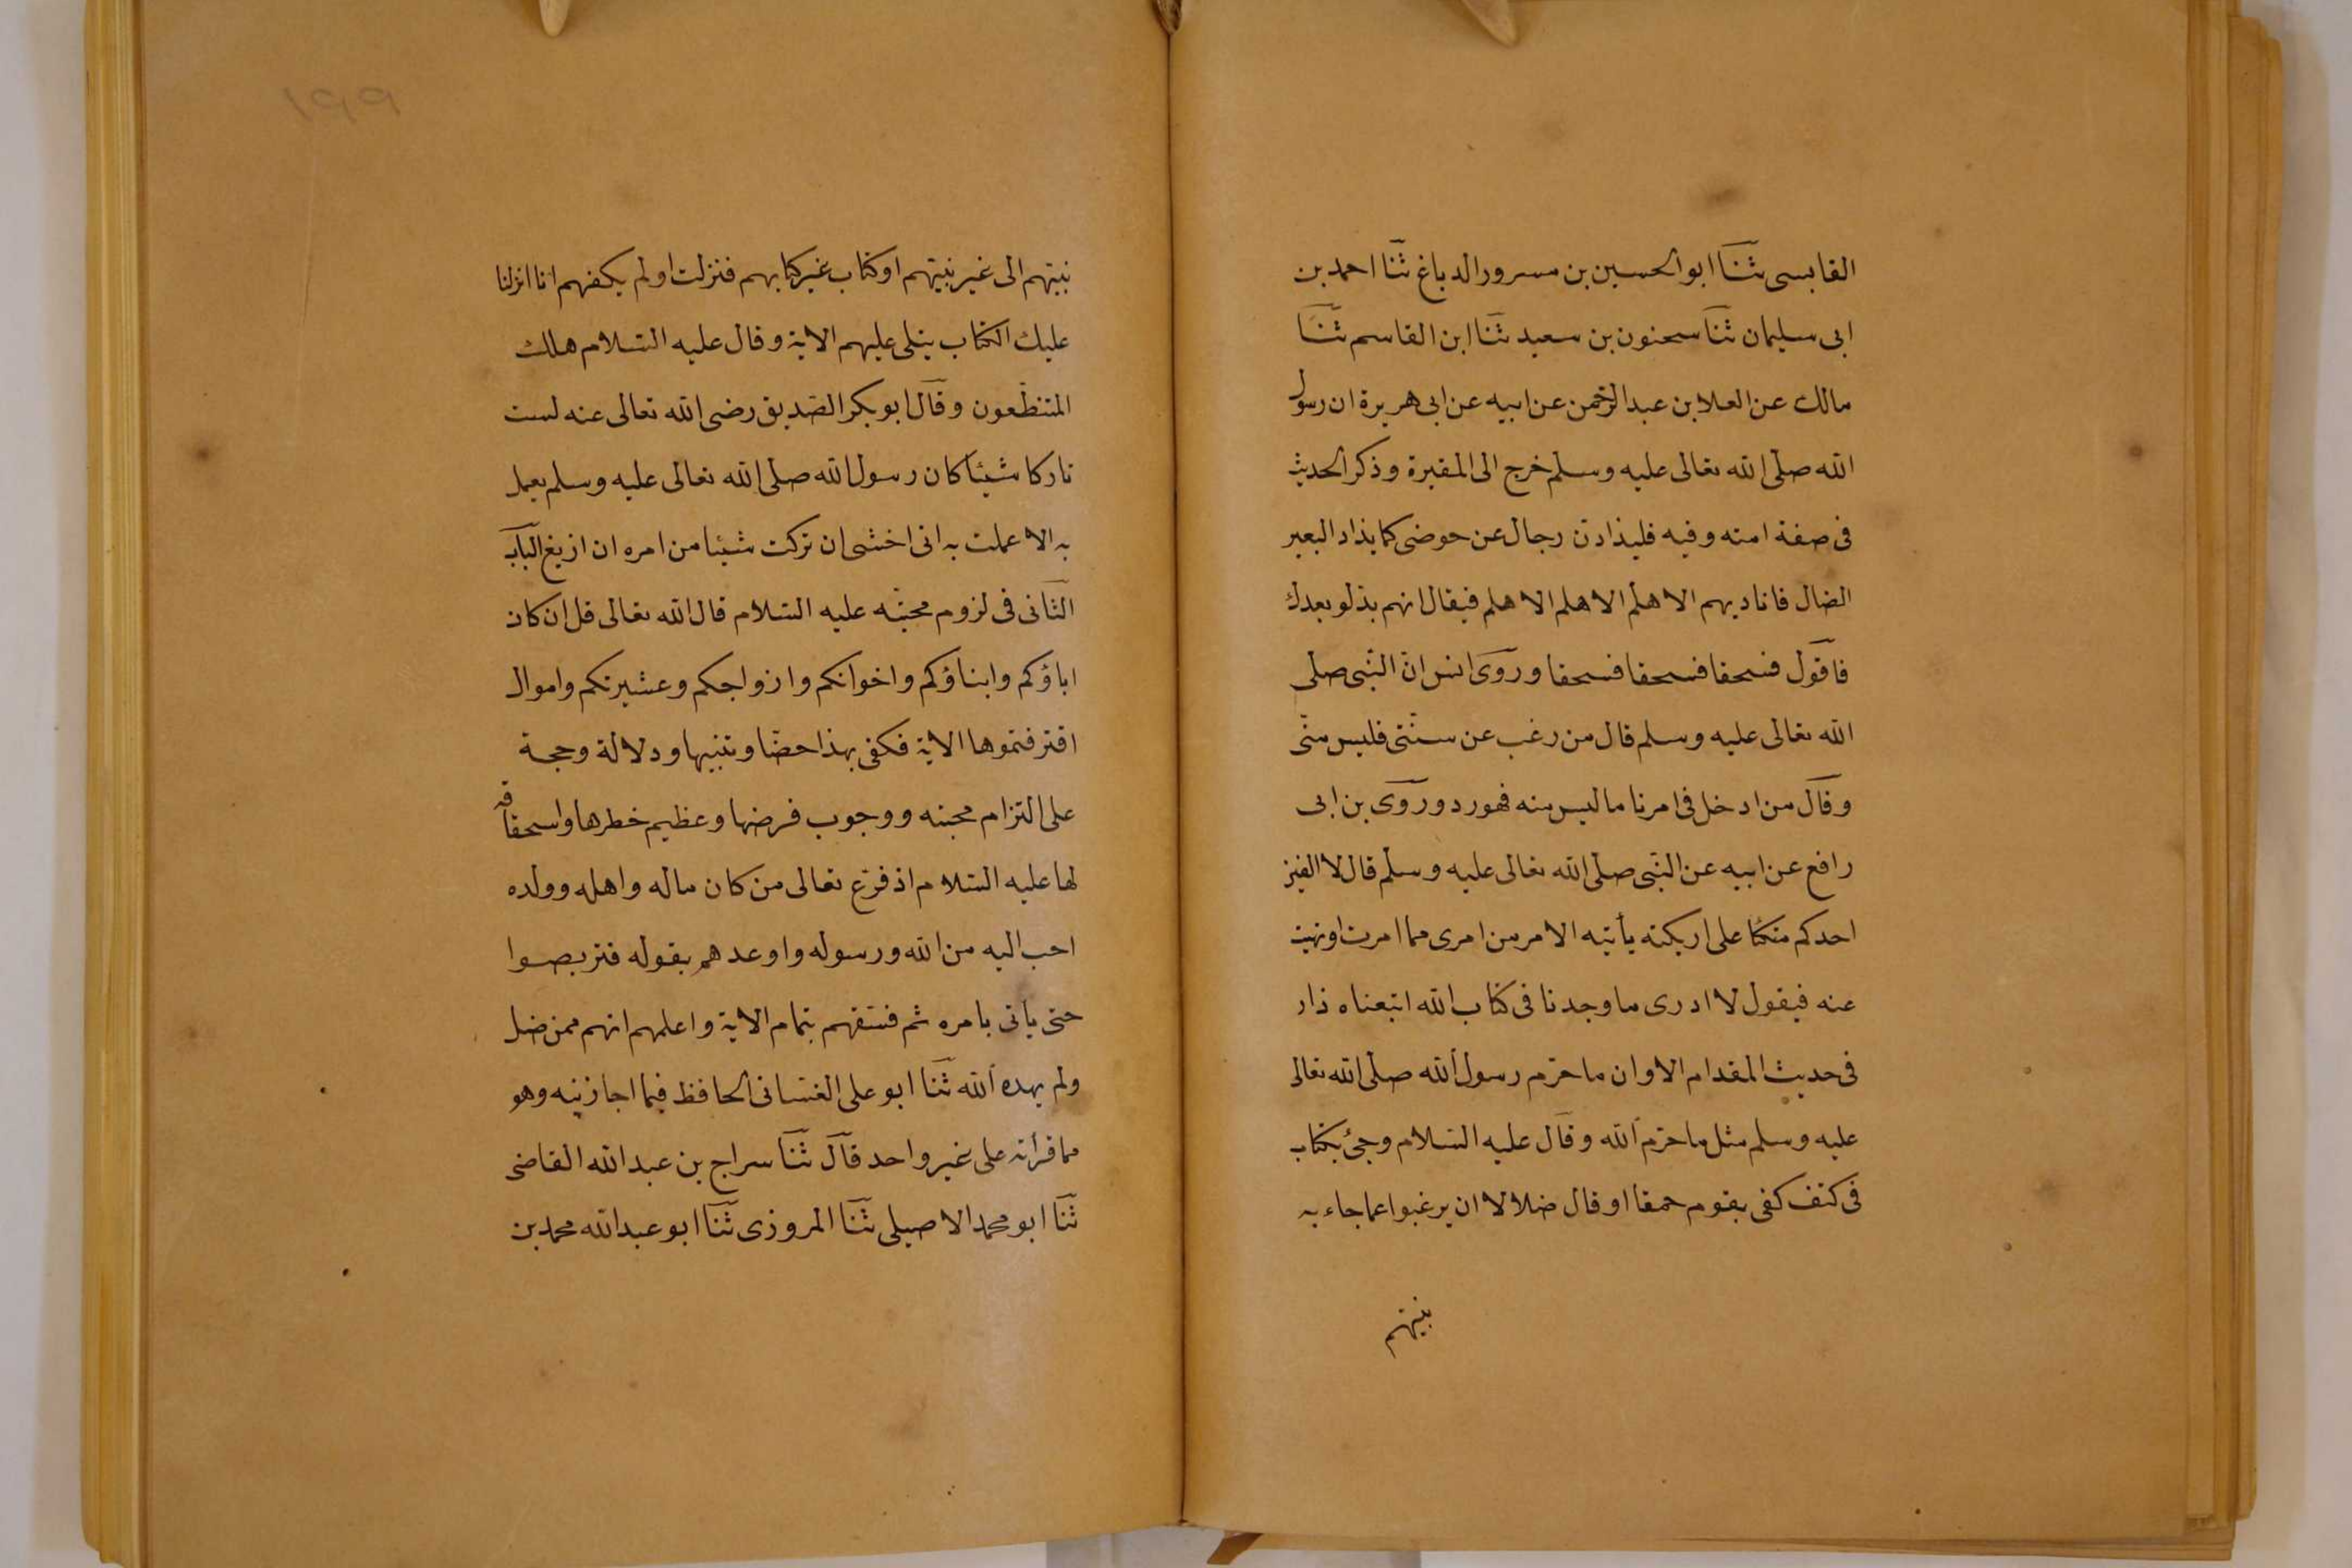 القابسى ثنا ابو الحسين بن مسرور الدباغ ثنا احمد بن
ابى سليمان ثنا سحنون بن سعيد ثنا ابن القاسم ثنا
مالك عن العلا بن عبد الرحمن عن ابيه عن ابى هريرة ان رسول
الله صلى الله تعالى عليه وسلم خرج الى المقبرة وذكر الحديث
فى صفة امته وفيه فليذادن رجال عن حوضى كما يذاد البعير
الضال فاناديهم الا هلم الا هلم الا هلم فيقال انهم بدلو بعدك
فاقول فسحقا فسحقا فسحقا وروى انس ان النبى صلى
الله تعالى عليه وسلم قال من رغب عن سنتى فليس منى
وقال من ادخل فى امرنا ما ليس منه فهو رد وروى بن ابى
رافع عن ابيه عن النبى صلى الله تعالى عليه وسلم قال لا الفين
احدكم متكئا على اريكته يأتيه الامر من امرى مما امرت او نهيت
عنه فيقول لا ادرى ما وجدنا فى كتاب الله اتبعناه ذاد
فى حديث المقدام الا وان ما حرم رسول الله صلى الله تعالى
عليه وسلم مثل ما حرم الله وقال عليه السلام وجئ بكتاب
فى كتف كفى بقوم حمقا او قال ضلالا ان يرغبوا عما جاء به
نبيهم
١٩٩
نبيهم الى غير نبيهم او كتاب غير كتابهم فنزلت اولم يكفهم انا انزلنا
عليك الكتاب يتلى عليهم الاية وقال عليه السلام هلك
المتنطعون وقال ابو بكر الصديق رضى الله تعالى عنه لست
تاركا شيئا كان رسول الله صلى الله تعالى عليه وسلم يعمل
به الا عملت به انى اخشى ان تركت شيئا من امره ان ازيغ الباب
الثانى فى لزوم محبته عليه السلام قال الله تعالى قل ان كان
اباؤكم وابناؤكم واخوانكم وازواجكم وعشيرتكم واموال
اقترفتموها الاية فكفى بهذا حضا وتنبيها ودلالة وحجة
على التزام محبته ووجوب فرضها وعظيم خطرها واستحقاقه
لها عليه السلام اذ قرع تعالى من كان ماله واهله وولده
احب اليه من الله ورسوله واوعدهم بقوله فتربصوا
حتى ياتى بامره ثم فسقهم بتمام الاية واعلمهم انهم ممن ضل
ولم يهده الله ثنا ابو على الغسانى الحافظ فيما اجازنيه وهو
مما قرأته على غير واحد قال ثنا سراج بن عبد الله القاضى
ثنا ابو محمد الاصيلى ثنا المروزى ثنا ابو عبد الله محمد بن